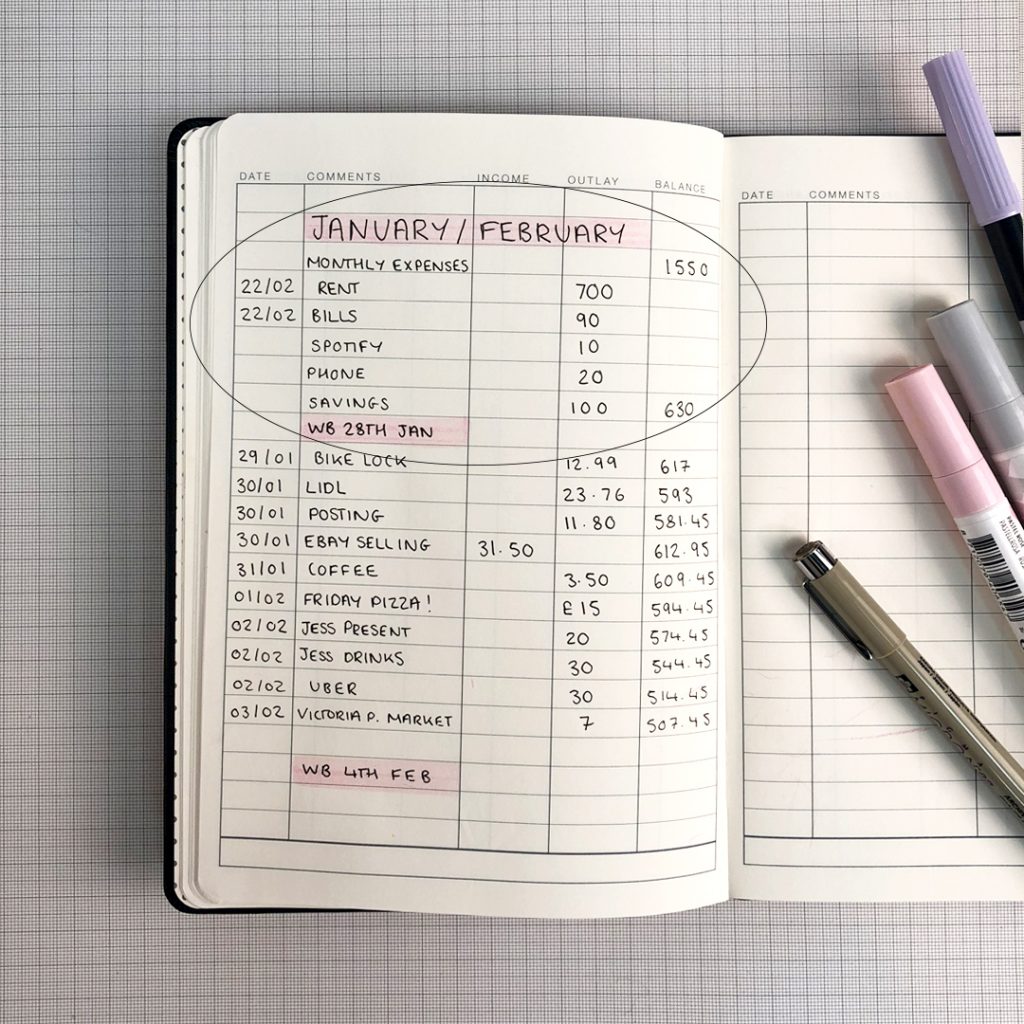 DATE COMMENTS INCOME OUTLAY BALANCE
JANUARY / FEBRUARY
MONTHLY EXPENSES 1550
22/02 RENT 700
22/02 BILLS 90
SPOTIFY 10
PHONE 20
SAVINGS 100 630
WB 28TH JAN
29/01 BIKE LOCK 12.99 617
30/01 LIDL 23.76 593
30/01 POSTING 11.80 581.45
30/01 EBAY SELLING 31.50 612.95
31/01 COFFEE 3.50 609.45
01/02 FRIDAY PIZZA! £15 594.45
02/02 JESS PRESENT 20 574.45
02/02 JESS DRINKS 30 544.45
02/02 UBER 30 514.45
03/02 VICTORIA P. MARKET 7 507.45
WB 4TH FEB
DATE COMMENTS